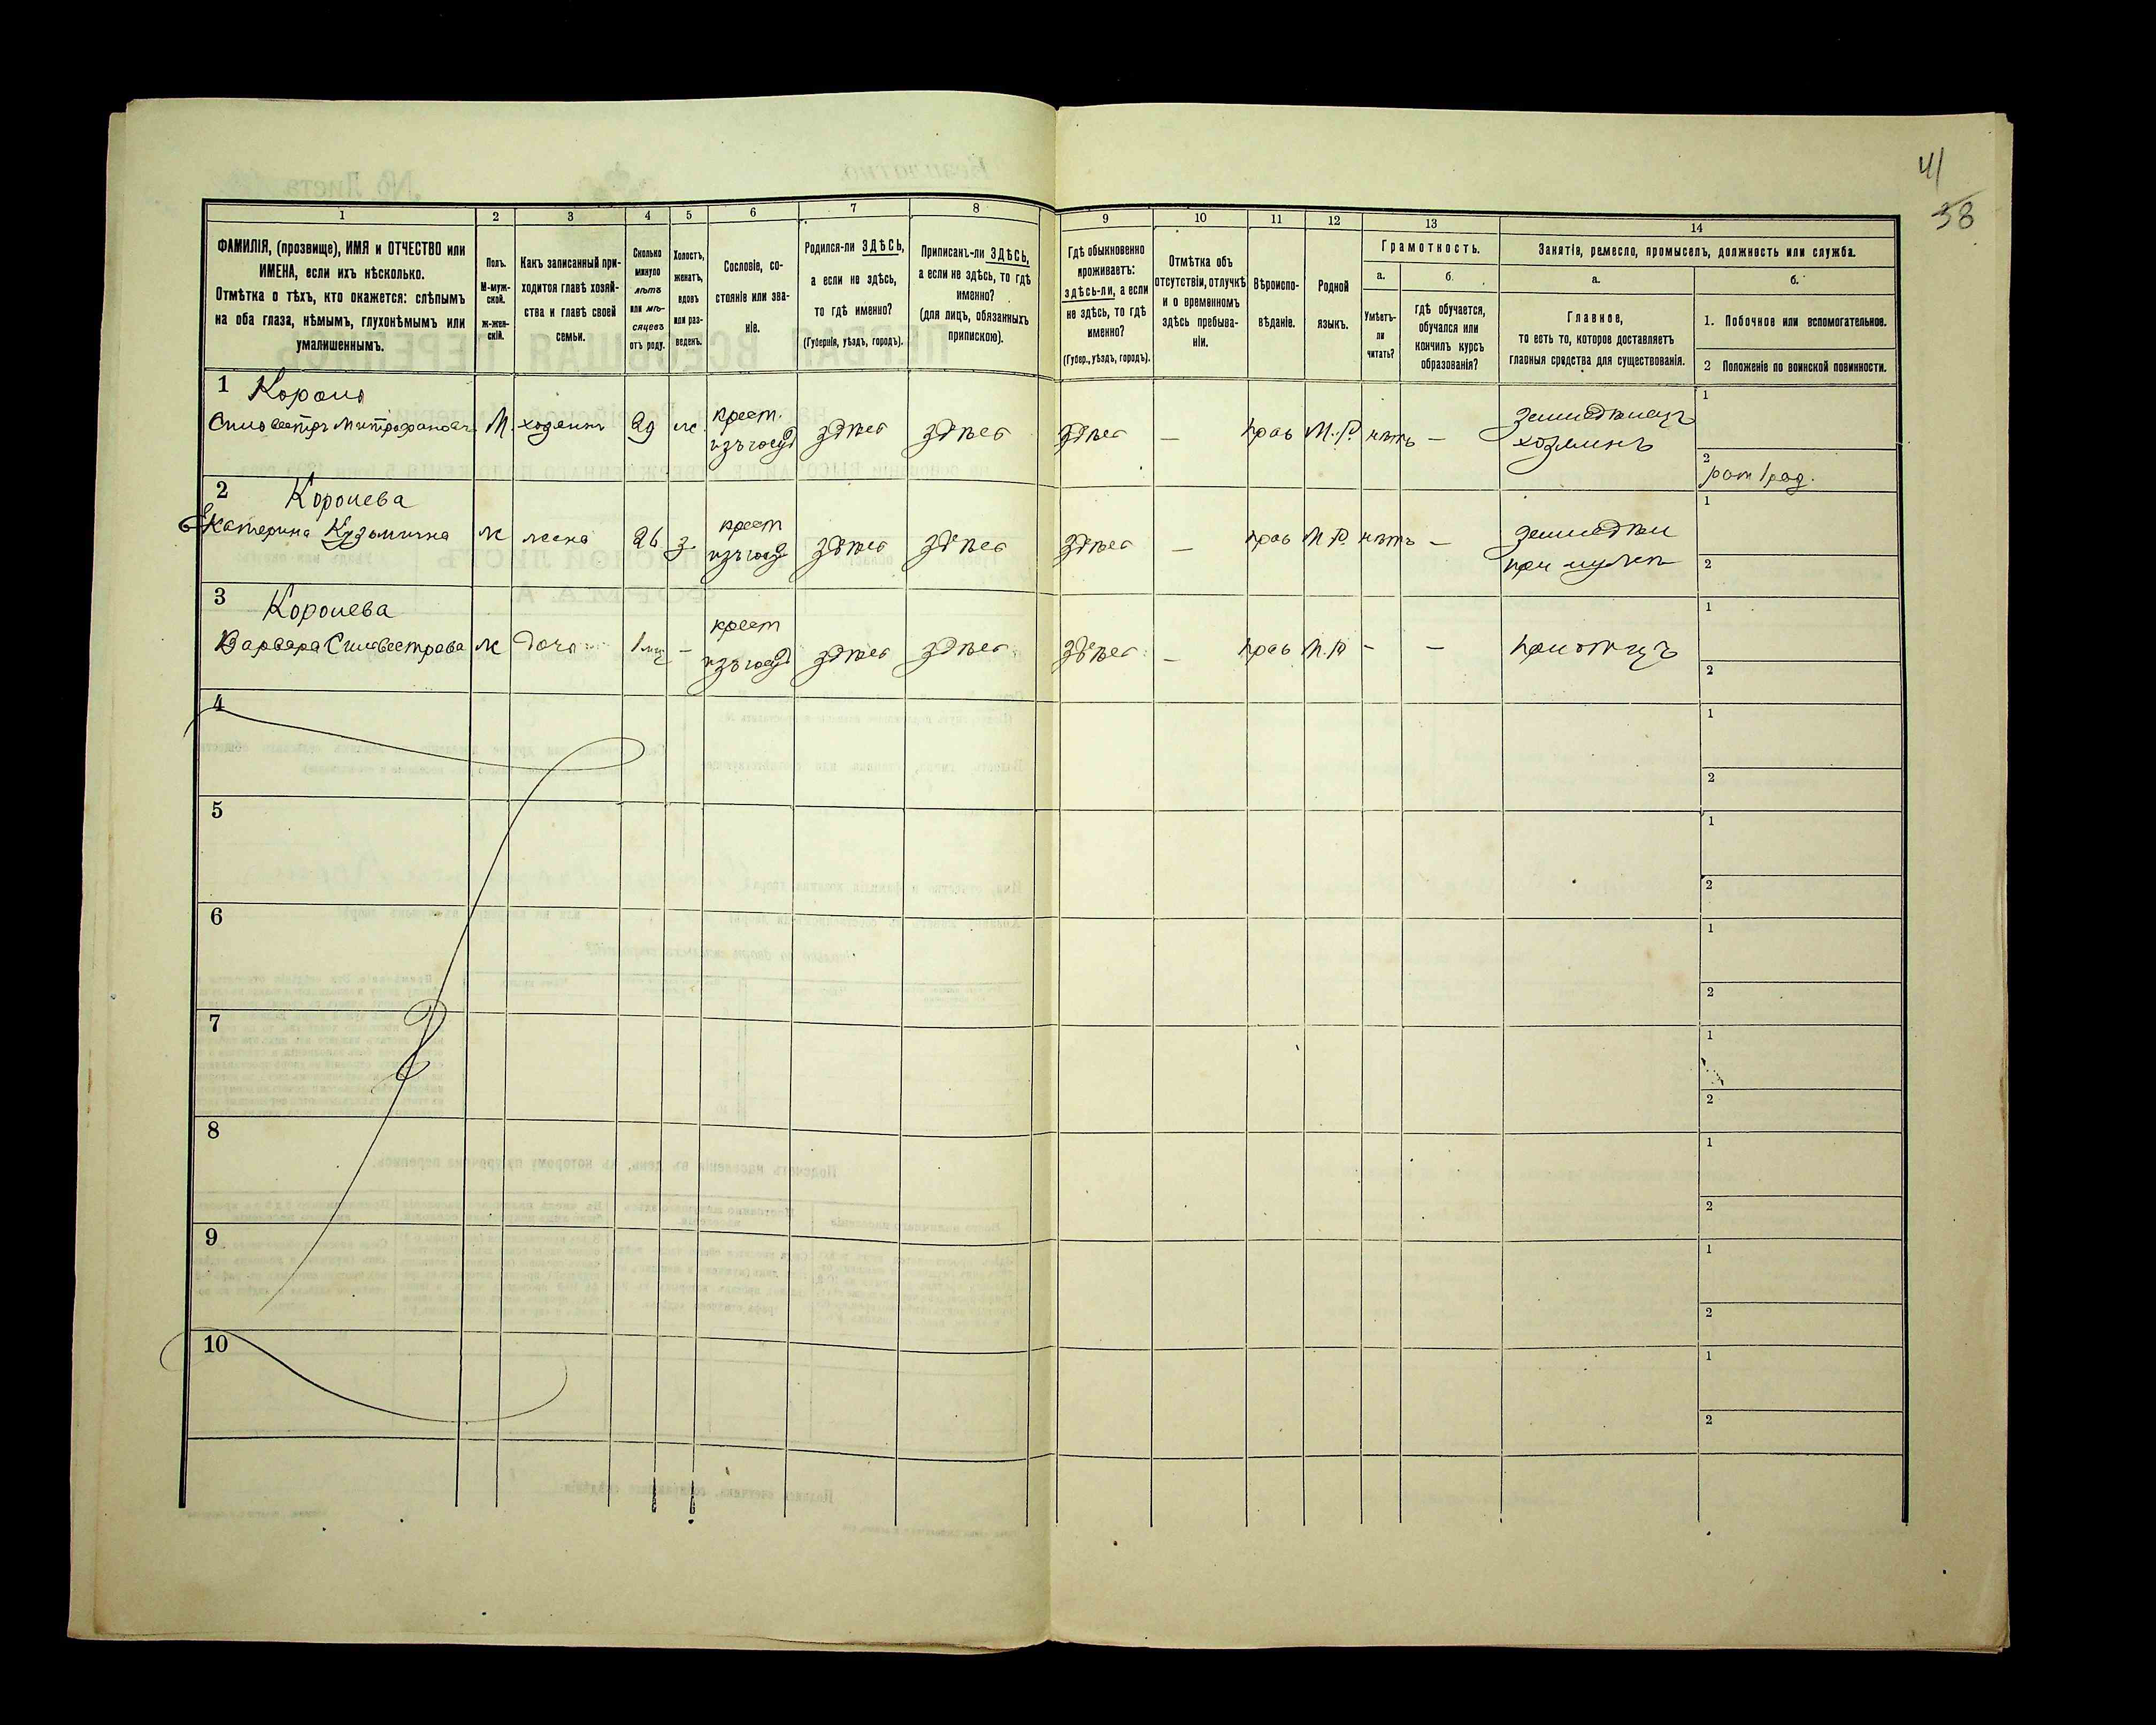 41
38
1
2
3
4
5
6
7
8
9
10
11
12
13
14
ФАМИЛІЯ, (прозвище), ИМЯ и ОТЧЕСТВО или
ИМЕНА, если ихъ нѣсколько.
Отмѣтка о тѣхъ, кто окажется: слѣпымъ
на оба глаза, нѣмымъ, глухонѣмымъ или
умалишеннымъ.
Полъ.
М-муж-
ской.
ж-жен-
скій.
Какъ записанный при-
ходится главѣ хозяй-
ства и главѣ своей
семьи.
Сколько
минуло
лѣтъ
или мѣ-
сяцевъ
отъ роду.
Холостъ,
женатъ,
вдовъ
или раз-
веденъ.
Сословіе, со-
стояніе или зва-
ніе.
Родился-ли ЗДѢСЬ,
а если не здѣсь,
то гдѣ именно?
(Губернія, уѣздъ, городъ).
Приписанъ-ли ЗДѢСЬ,
а если не здѣсь, то гдѣ
именно?
(для лицъ, обязанныхъ
припискою).
Гдѣ обыкновенно
проживаетъ:
здѣсь-ли, а если
не здѣсь, то гдѣ
именно?
(Губер., уѣздъ, городъ).
Отмѣтка объ
отсутствіи, отлучкѣ
и о временномъ
здѣсь пребыва-
ніи.
Вѣроиспо-
вѣданіе.
Родной
языкъ.
Грамотность.
а.
б.
Умѣетъ-
ли
читать?
гдѣ обучается,
обучался или
кончилъ курсъ
образованія?
Занятія, ремесло, промыселъ, должность или служба.
а.
б.
Главное,
то есть то, которое доставляетъ
главныя средства для существованія.
1. Побочное или вспомогательное.
2 Положеніе по воинской повинности.
1 Король
Сильвестръ Митрофановъ М. хозяинъ 29 ж. крест. изъ госуд здѣсь здѣсь здѣсь — прав М.Р. нѣтъ — земледѣлецъ хозяинъ
1
2
рат 1 раз.
2 Королева
Екатерина Кузьмична ж жена 26 з. крест изъ госуд здѣсь здѣсь здѣсь — прав М.Р. нѣтъ — земледѣл при мужѣ
1
2
3 Королева
Варвара Сильвестрова ж дочь 1 мц — крест изъ госуд здѣсь здѣсь здѣсь — прав М.Р. — — при отцѣ
1
2
4
1
2
5
1
2
6
1
2
7
1
2
8
1
2
9
1
2
10
1
2